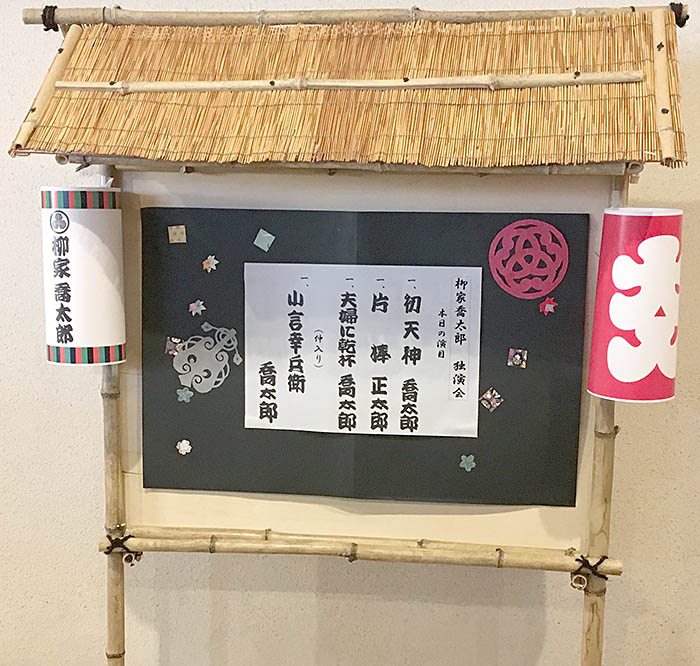 柳家喬太郎 独演会
本日の演目
一、初天神 喬太郎
一、片棒 正太郎
一、夫婦に乾杯 喬太郎
(仲入り)
一、小言幸兵衛 喬太郎
柳家喬太郎